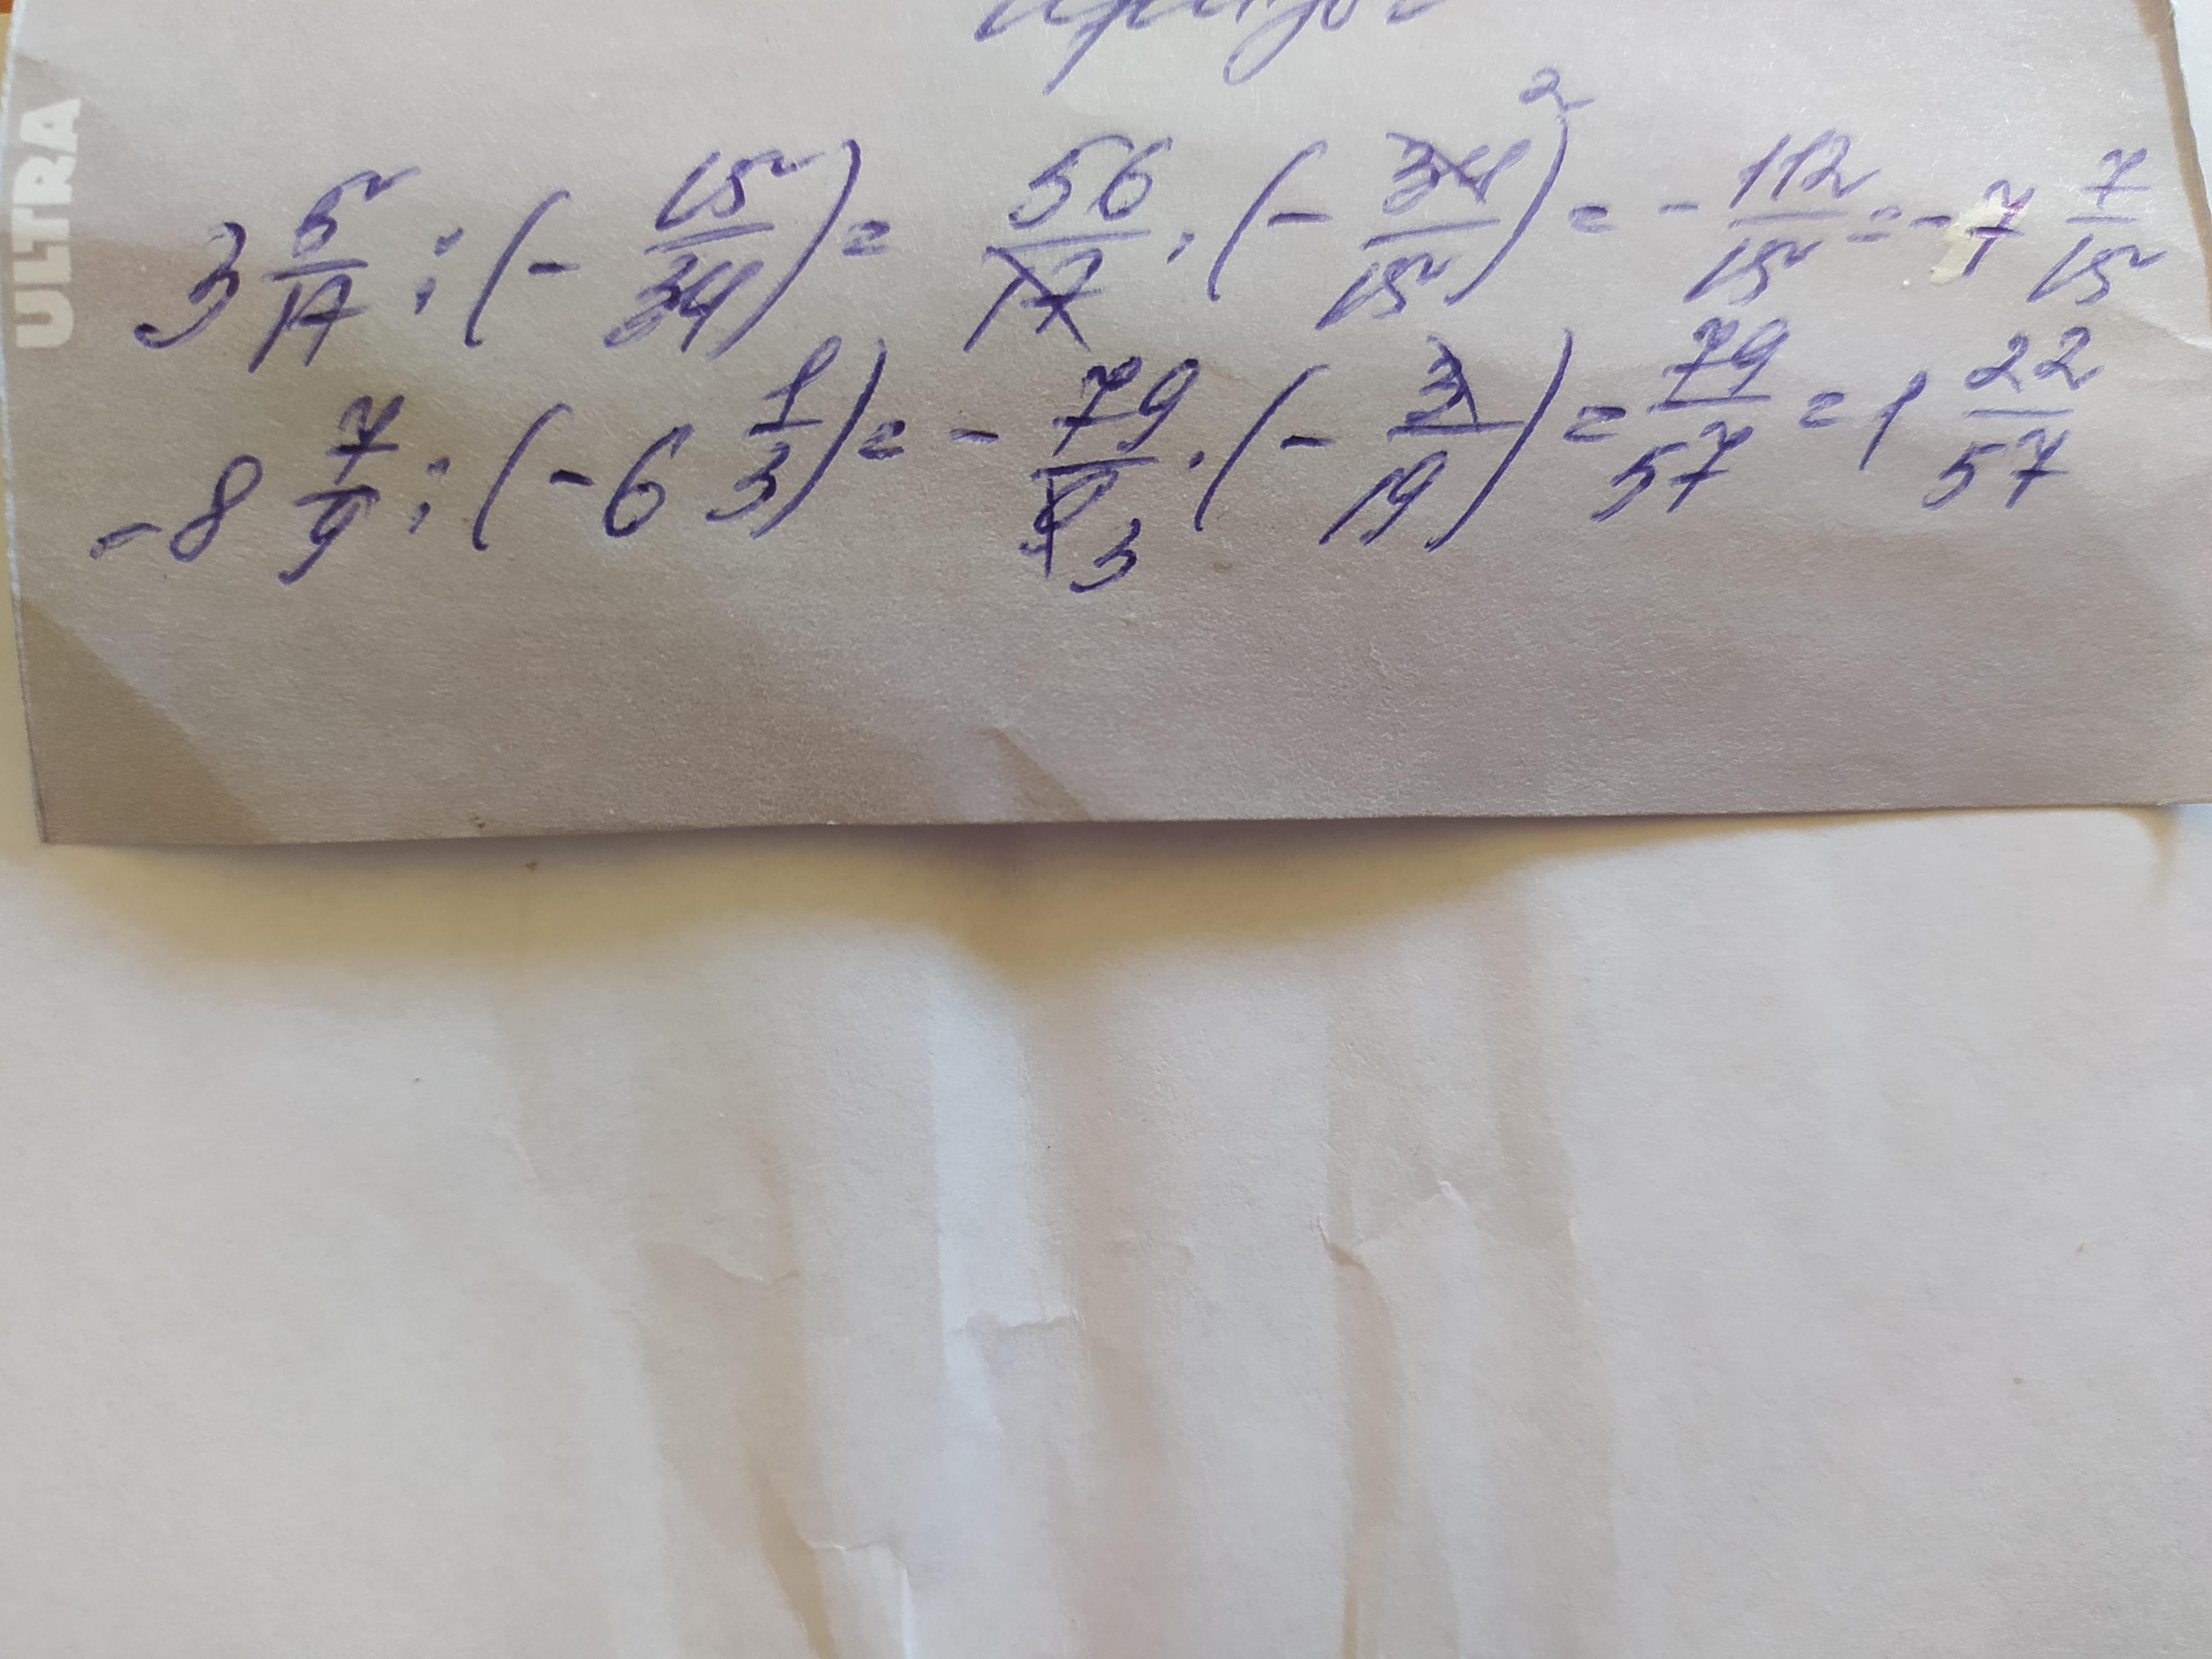 ULTRA
3 5/17 : (- 15/34) = 56/17 · (- 34/15) 2 = - 112/15 = - 7 7/15
- 8 7/9 : (- 6 1/3) = - 79/9 3 · (- 3/19) = 79/57 = 1 22/57